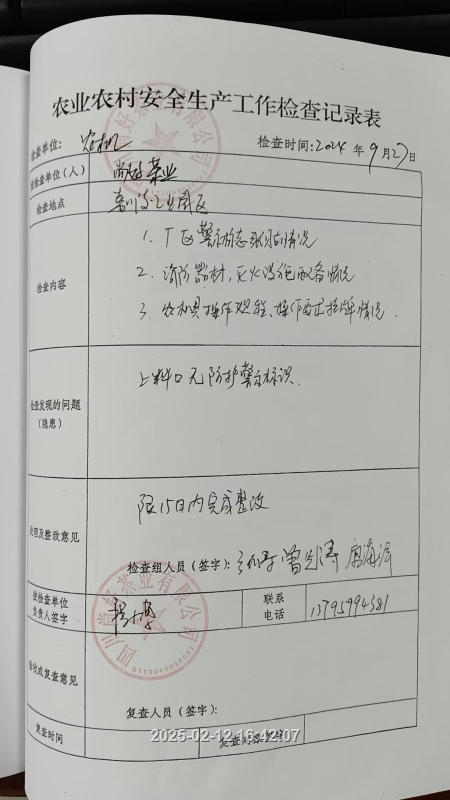 农业农村安全生产工作检查记录表
检查单位: 农机 检查时间:2024 年 9 月 27 日
被检查单位(人) 尚好茶业
检查地点 工业园区
检查内容 1. 厂区警示标志张贴情况
2. 消防器材, 灭火设施配备情况
3. 农机具操作规程、挂牌情况.
检查发现的问题 上料口无防护警示标识.
(隐患)
处理及整改意见 限15日内完成整改
检查组人员(签字): 曾
被检查单位 联系
负责人签字 电话 13795994381
四川尚好茶业有限公司
验收或复查意见
复查人员(签字):
复查时间 复查对象签字
2025-02-12 16:42:07